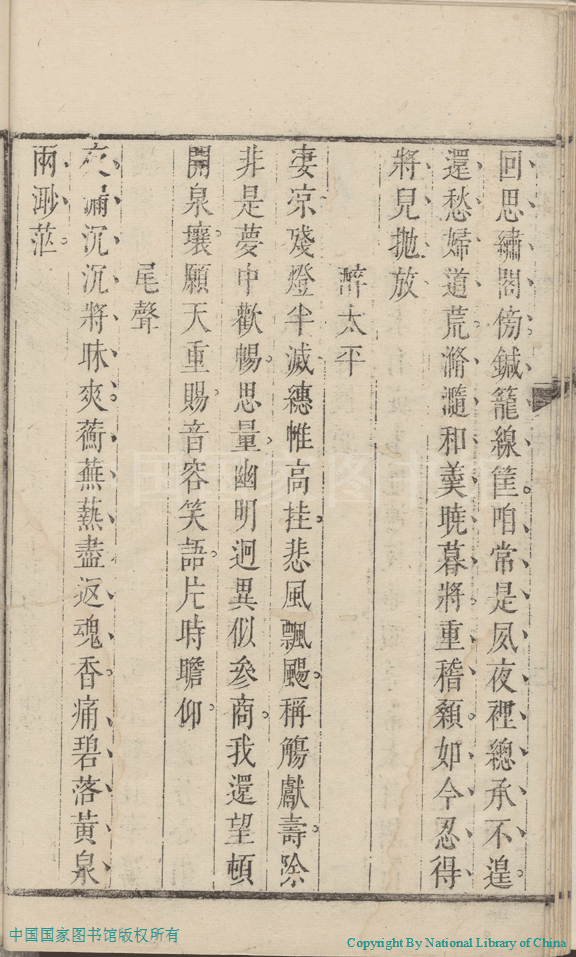 回思繡閣傍鍼籠線筐。咱常是夙夜裡總承不遑。
還愁婦道荒滫瀡和羹晓暮將。重稽顙如今忍得
將兒抛放
醉太平
凄凉。殘燈半滅繐帷高挂。悲風飄颺。稱觴獻壽。除
非是夢中歡暢。思量。幽明迥異似參商。我還望頓
開泉壤。願天重賜音容笑語。片時瞻仰。
尾聲
夜漏沉沉將昧爽。蘅蕪爇盡返魂香。痛碧落黃泉
兩渺茫。
中国国家图书馆版权所有
Copyright By National Library of China